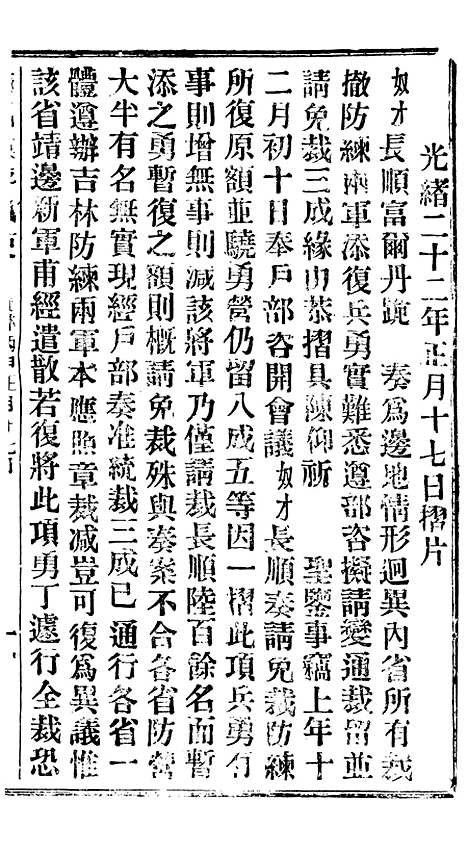 光緒二十二年正月十七日摺片
奴才長順富爾丹跪 奏爲邊地情形迥異內省所有裁
撤防練兩軍添復兵勇實難悉遵部咨擬請變通裁留並
請免裁三成緣由恭摺具陳仰祈 聖鑒事竊上年十
二月初十日奉戶部咨開會議奴才長順奏請免裁防練
所復原額並驍勇營仍留八成五等因一摺此項兵勇有
事則增無事則減該將軍乃僅請裁長順陸百餘名而暫
添之勇暫復之額則概請免裁殊與奏案不合各省防營
大半有名無實現經戶部奏准統裁三成已通行各省一
體遵辦吉林防練兩軍本應照章裁減豈可復爲異議惟
該省靖邊新軍甫經遣散若復將此項勇丁遽行全裁恐
一